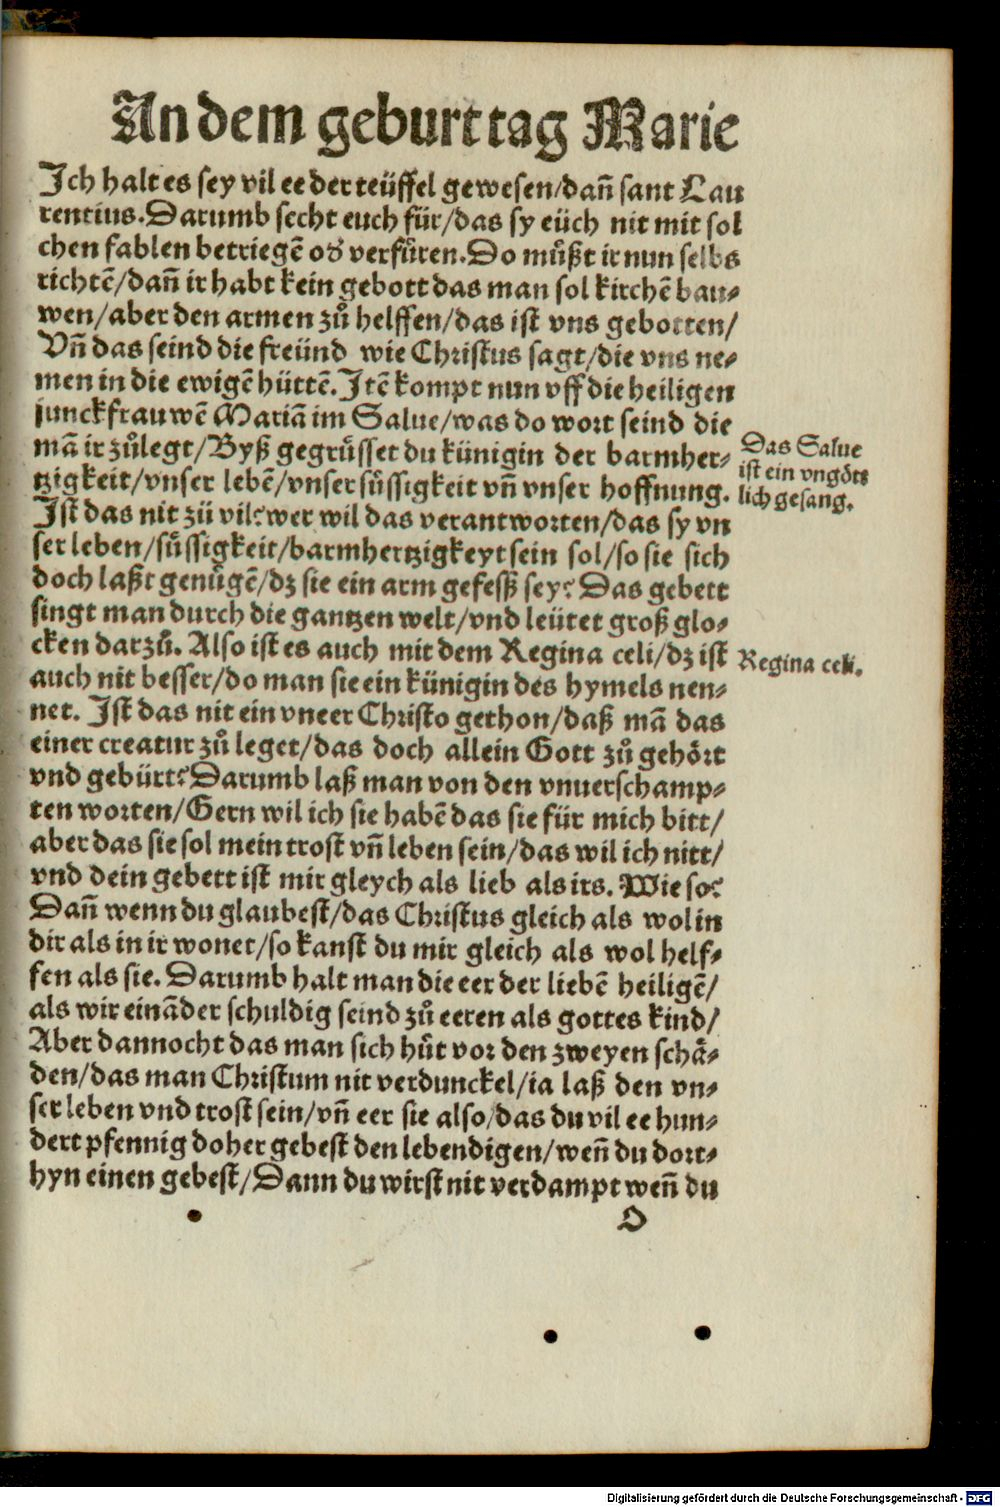 An dem geburt tag Marie
Ich halt es sey vil ee der teüffel gewesen/dañ sant Lau
rentius. Darumb secht euch für/das sy eüch nit mit sol
chen fablen betriegē oď verfůren. Do můßt ir nun selbs
richtē/dañ ir habt kein gebott das man sol kirchē bau⸗
wen/aber den armen zů helffen/das ist vns gebotten/
Vñ das seind die freünd wie Christus sagt/die vns ne⸗
men in die ewigē hüttē. Itē kompt nun vff die heiligen
junckfrauwē Mariā im Salue/was do wort seind die
mā ir zůlegt/Byß gegrůsset du künigin der barmher⸗
tzigkeit/vnser lebē/vnser sůssigkeit vñ vnser hoffnung.
Das Salue
ist ein vngötz
lich gesang.
Ist das nit zü vil? wer wil das verantworten/das sy vn
ser leben/sůssigkeit/barmhertzigkeyt sein sol/so sie sich
doch laßt genůgē/dz sie ein arm gefesß sey? Das gebett
singt man durch die gantzen welt/vnd leütet groß glo⸗
cken darzů. Also ist es auch mit dem Regina celi/dz ist
Regina celi.
auch nit besser/do man sie ein künigin des hymels nen⸗
net. Ist das nit ein vneer Christo gethon/daß mā das
einer creatur zů leget/das doch allein Gott zů gehört
vnd gebürt? Darumb laß man von den vnuerschamp⸗
ten worten/Gern wil ich sie habē das sie für mich bitt/
aber das sie sol mein trost vñ leben sein/das wil ich nitt/
vnd dein gebett ist mir gleych als lieb als irs. Wie so?
Dañ wenn du glaubest/das Christus gleich als wol in
dir als in ir wonet/so kanst du mir gleich als wol helf⸗
fen als sie. Darumb halt man die eer der liebē heiligē/
als wir eināder schuldig seind zů eeren als gottes kind/
Aber dannocht das man sich hůt vor den zweyen schä⸗
den/das man Christum nit verdunckel/ia laß den vn⸗
ser leben vnd trost sein/vñ eer sie also/das du vil ee hun⸗
dert pfennig do her gebest den lebendigen/weñ du dort⸗
hyn einen gebest/Dann du wirst nit verdampt weñ du
O
Digitalisierung gefördert durch die Deutsche Forschungsgemeinschaft - DFG